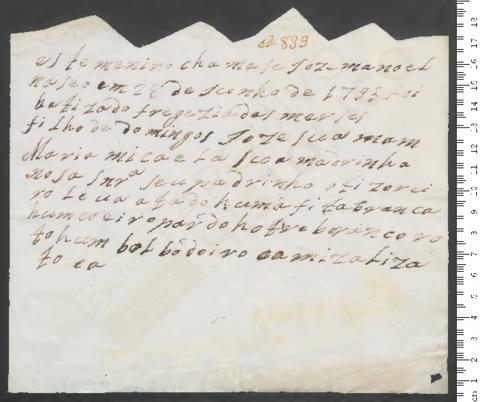 cb 839
es te menino cha ma se Joze manoel
naseo em 28 de Junho de 1793 foi
batizado fregezia das merses
filho de domingos Joze sua mam
Maria micae la sua madrinha
nosa snrª seu padrinho o tizorei
ro leva atado huma fita branca
hum coeiro pardo
to hum
camiza liza